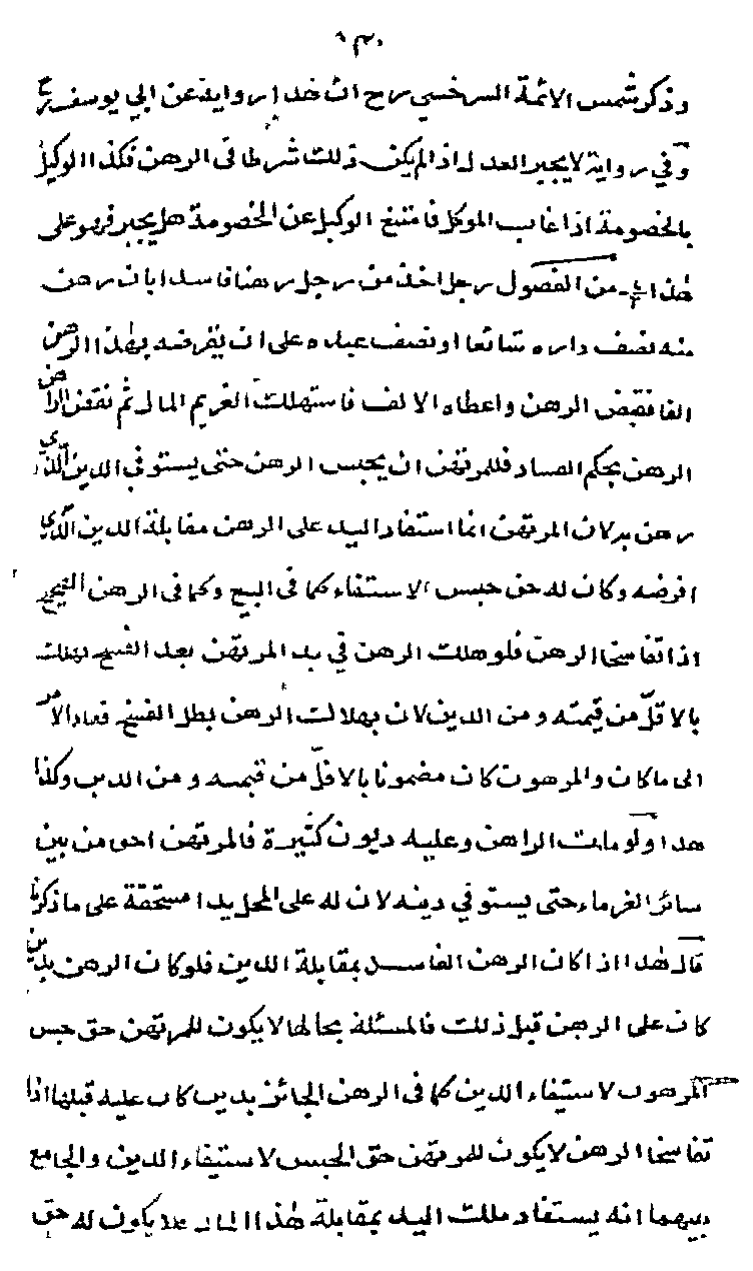 وذكر شمس الائمة السرخسي رح ان هذا رواية عن ابي يوسف رح
وفي رواية لا يجبر العدل اذا لم يكن ذلك شرطا في الرهن فكذا الوكيل
بالخصومة اذا غاب الموكل فامتنع الوكيل عن الخصومة هل يجبر فهو على
هذا من الفصول رجل اخذ من رجل رهنا فاسدا بان رهن
منه نصف داره شائعا او نصف عبده على ان يقرضه بهذا الرهن
الفا فقبض الرهن واعطاه الالف فاستهلك الغريم المال ثم نقض الراهن
الرهن بحكم الفساد فللمرتهن ان يحبس الرهن حتى يستوفي الدين الذي
رهن به لان المرتهن انما استفاد اليد على الرهن مقابلة الدين الذي
اقرضه وكان له حق حبس الاستيفاء كما في البيع وكما في الرهن الصحيح
اذا تفاسخا الرهن فلو هلك الرهن في يد المرتهن بعد الفسخ يهلك
بالاقل من قيمته ومن الدين لان بهلاك الرهن بطل الفسخ فعاد الامر
الى ما كان والمرهون كان مضمونا بالاقل من قيمته ومن الدين وكذا
هذا ولو مات الراهن وعليه ديون كثيرة فالمرتهن احق من بين
سائر الغرماء حتى يستوفي دينه لان له على المحل يدا مستحقة على ما ذكرنا
قال هذا اذا كان الرهن الفاسد بمقابلة الدين فلو كان الرهن بدين
كان على الرهن قبل ذلك فالمسئلة بحالها لا يكون للمرتهن حق حبس
المرهون لاستيفاء الدين كما في الرهن الجائز بدين كان عليه قبلها اذا
تفاسخا الرهن لا يكون للمرتهن حق الحبس لاستيفاء الدين والجامع
بينهما انه يستفاد ملك اليد بمقابلة هذا المال يكون له حق